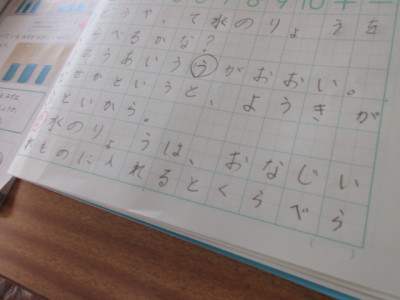 8 9 10 + ー
うや、て水のりょうを
べるかな?
うあいううがおおい。
かというと、ようきが
といから。
水のりょうは、おなじい
ものに入れるとくらべら